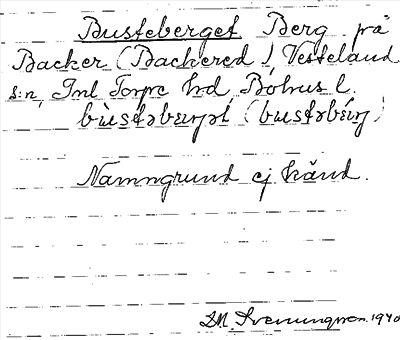 Busteberget Berg på
Backer (Backered), Västerland
s:n, Inl Torpe hd Bohus l.
bùstəbærjət (bustəbérj)
Namngrund ej känd.
D.N. Svenungsson. 1940